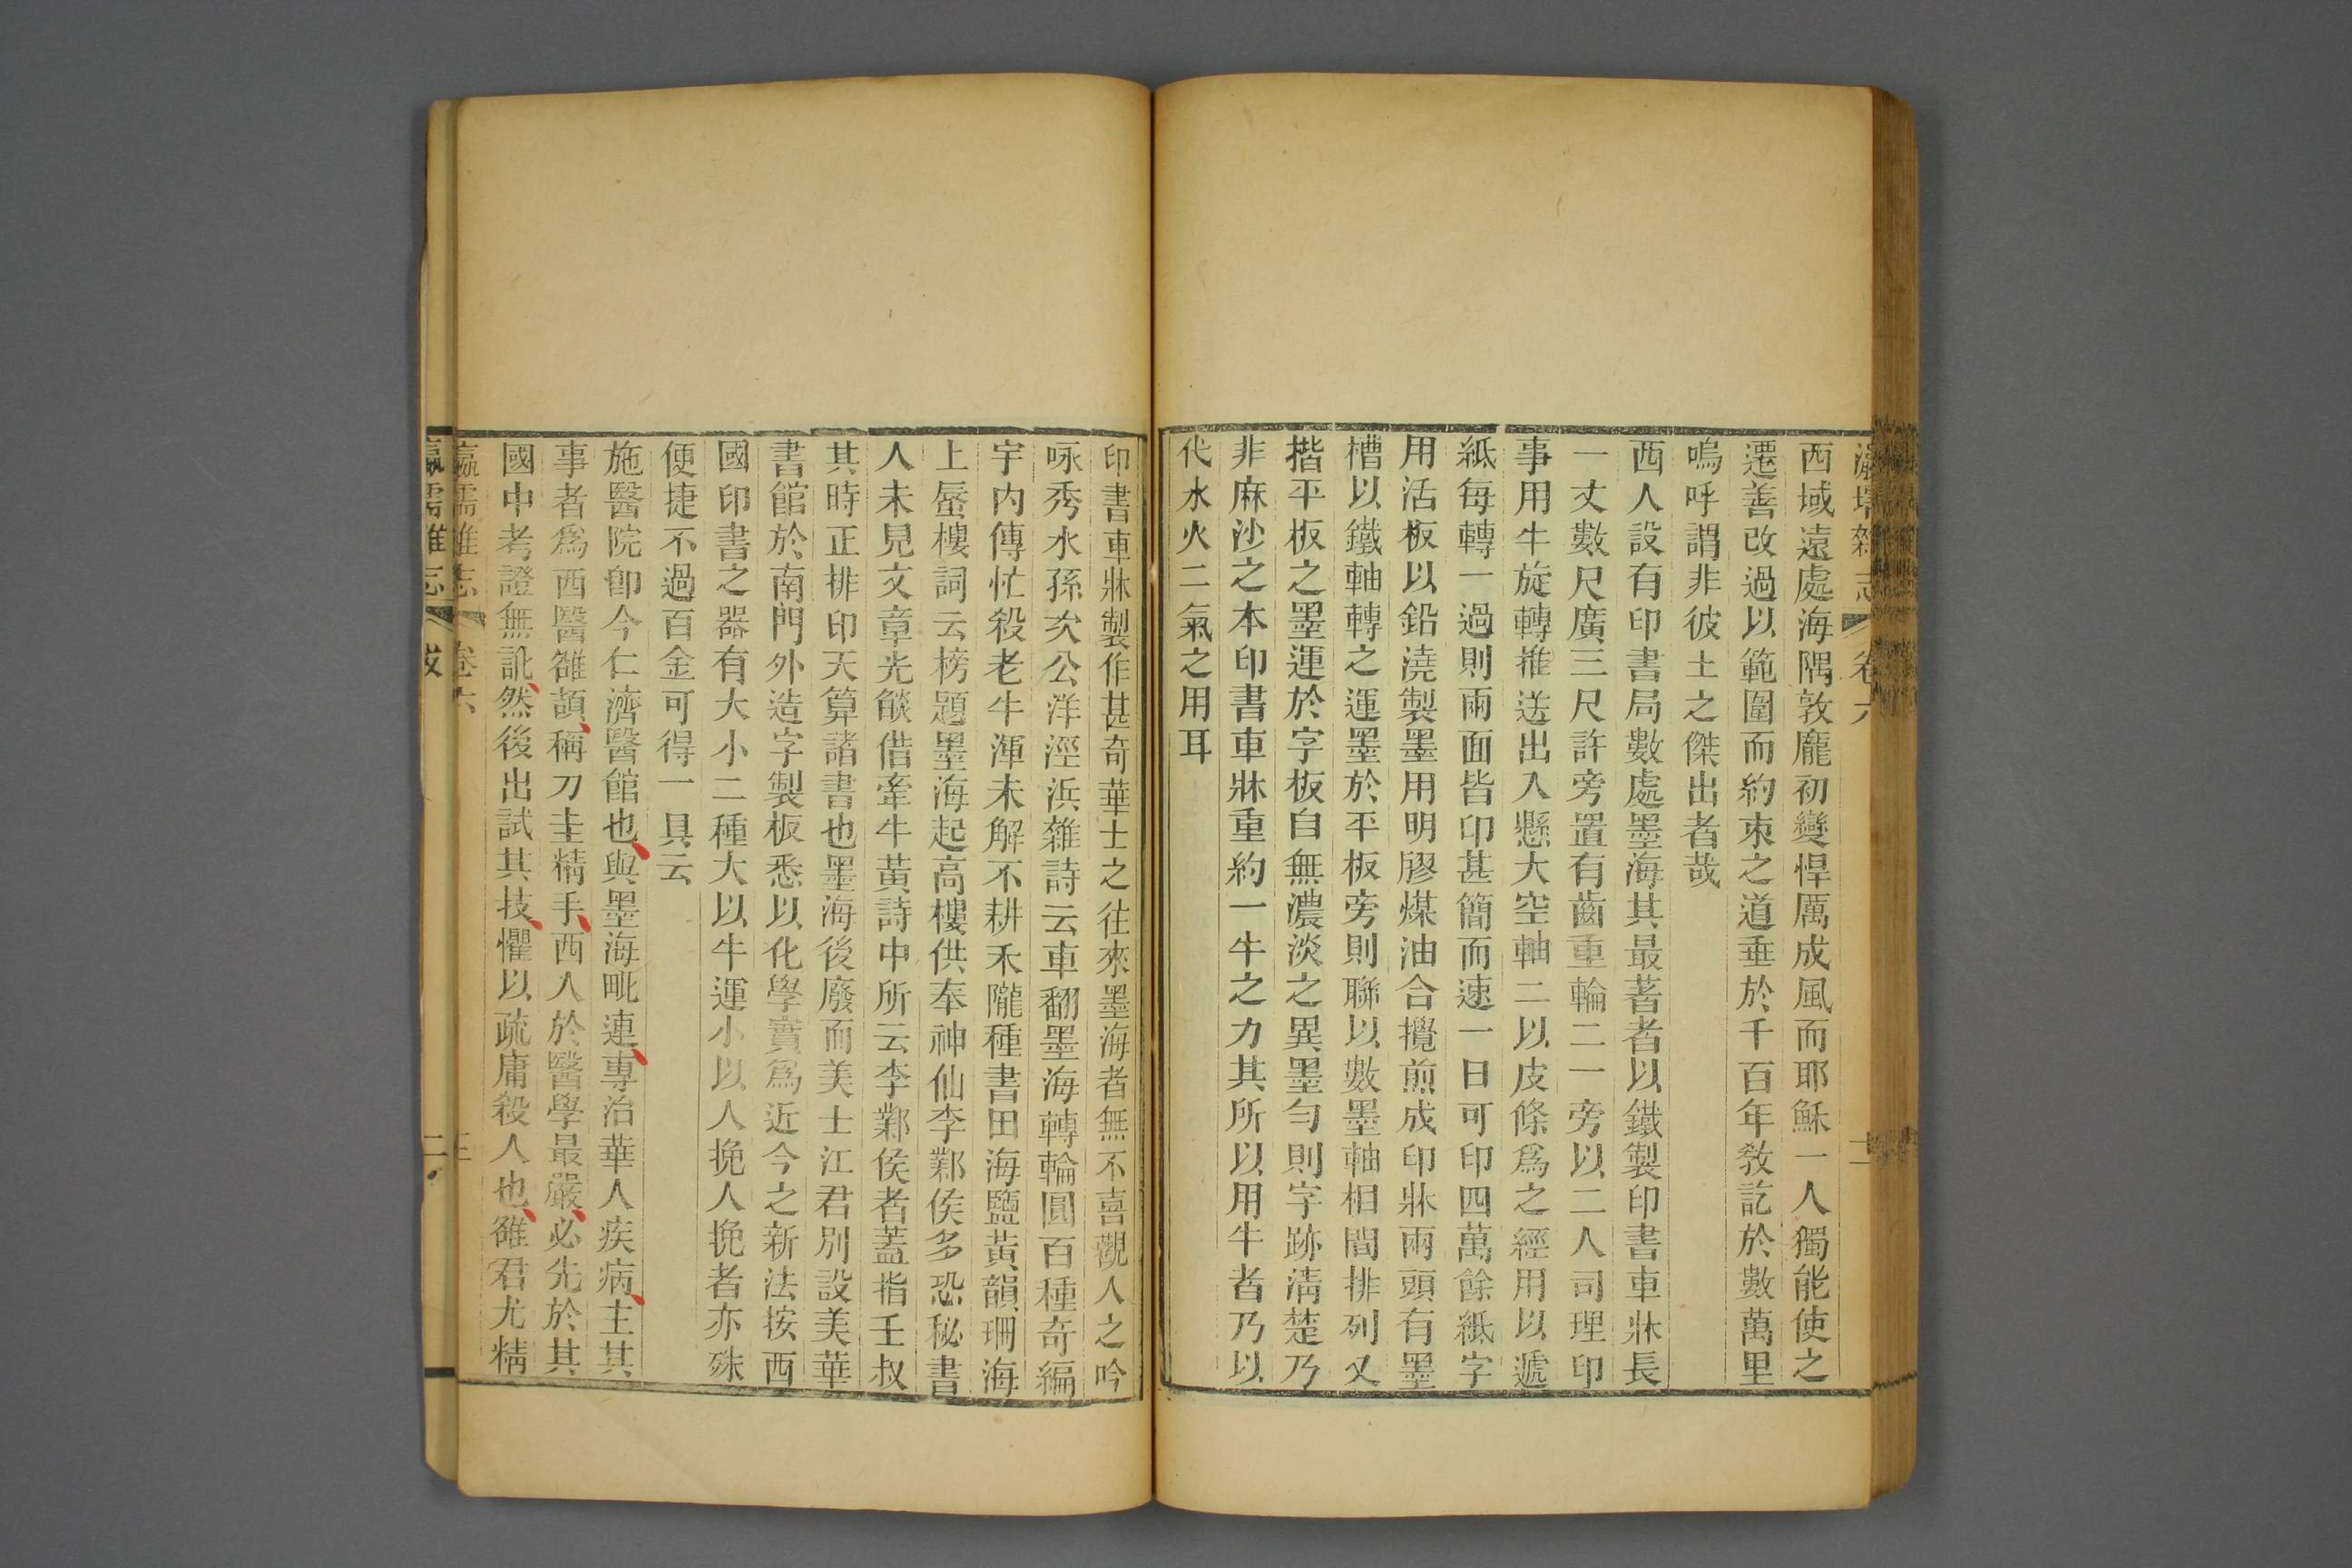 瀛壖雜志 卷六
西域遠處海隅敦龐初變悍厲成風而耶穌一人獨能使之
遷善改過以範圍而約束之道垂於千百年教訖於數萬里
嗚呼謂非彼土之傑出者哉
西人設有印書局數處墨海其最著者以鐵製印書車牀長
一丈數尺廣三尺許旁置有齒重輪二一旁以二人司理印
事用牛旋轉推送出入懸大空軸二以皮條爲之經用以遞
紙每轉一過則兩面皆印甚簡而速一日可印四萬餘紙字
用活板以鉛澆製墨用明膠煤油合攪煎成印牀兩頭有墨
槽以鐵軸轉之運墨於平板旁則聯以數墨軸相間排列又
揩平板之墨運於字板自無濃淡之異墨勻則字跡淸楚乃
非麻沙之本印書車牀重約一牛之力其所以用牛者乃以
代水火二氣之用耳
印書車牀製作甚奇華士之往來墨海者無不喜觀人之吟
咏秀水孫次公洋涇浜雜詩云車翻墨海轉輪圓百種奇編
宇內傳忙殺老牛渾未解不耕禾隴種書田海鹽黃韻珊海
上蜃樓詞云榜題墨海起高樓供奉神仙李鄴侯多恐秘書
人未見文章光燄借牽牛黃詩中所云李鄴侯者蓋指壬叔
其時正排印天算諸書也墨海後廢而美士江君別設美華
書館於南門外造字製板悉以化學實爲近今之新法按西
國印書之器有大小二種大以牛運小以人挽人挽者亦殊
便捷不過百金可得一具云
施醫院卽今仁濟醫館也與墨海毗連專治華人疾病主其
事者爲西醫雒頡稱刀圭精手西人於醫學最嚴必先於其
國中考證無訛然後出試其技懼以疏庸殺人也雒君尤精
瀛壖雜志 卷六
瀛壖雜志 跋 二